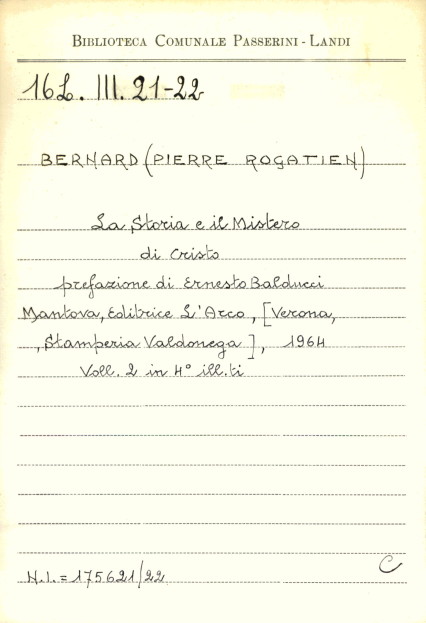 BIBLIOTECA COMUNALE PASSERINI - LANDI
16L. III. 21-22
BERNARD (PIERRE ROGATIEN)
La Storia e il Mistero
di Cristo
prefazione di Ernesto Balducci
Mantova, Editrice L'Arco, [Verona,
, Stamperia Valdonega], 1964
Voll. 2 in 4° ill.ti
N.I. = 175621/22
C